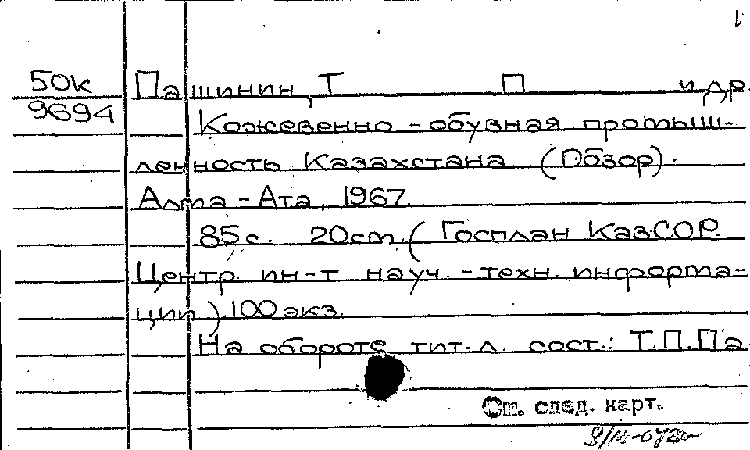 50к Пашинин, Т П и др.
9694
Кожевенно-обувная промыш-
ленность Казахстана (Обзор).
Алма-Ата, 1967.
85с. 20см. (Госплан КазССР.
Центр. ин-т науч.-техн. информа-
ции). 100 экз.
На обороте тит. л. сост.: Т.П.Па
См. след. карт.